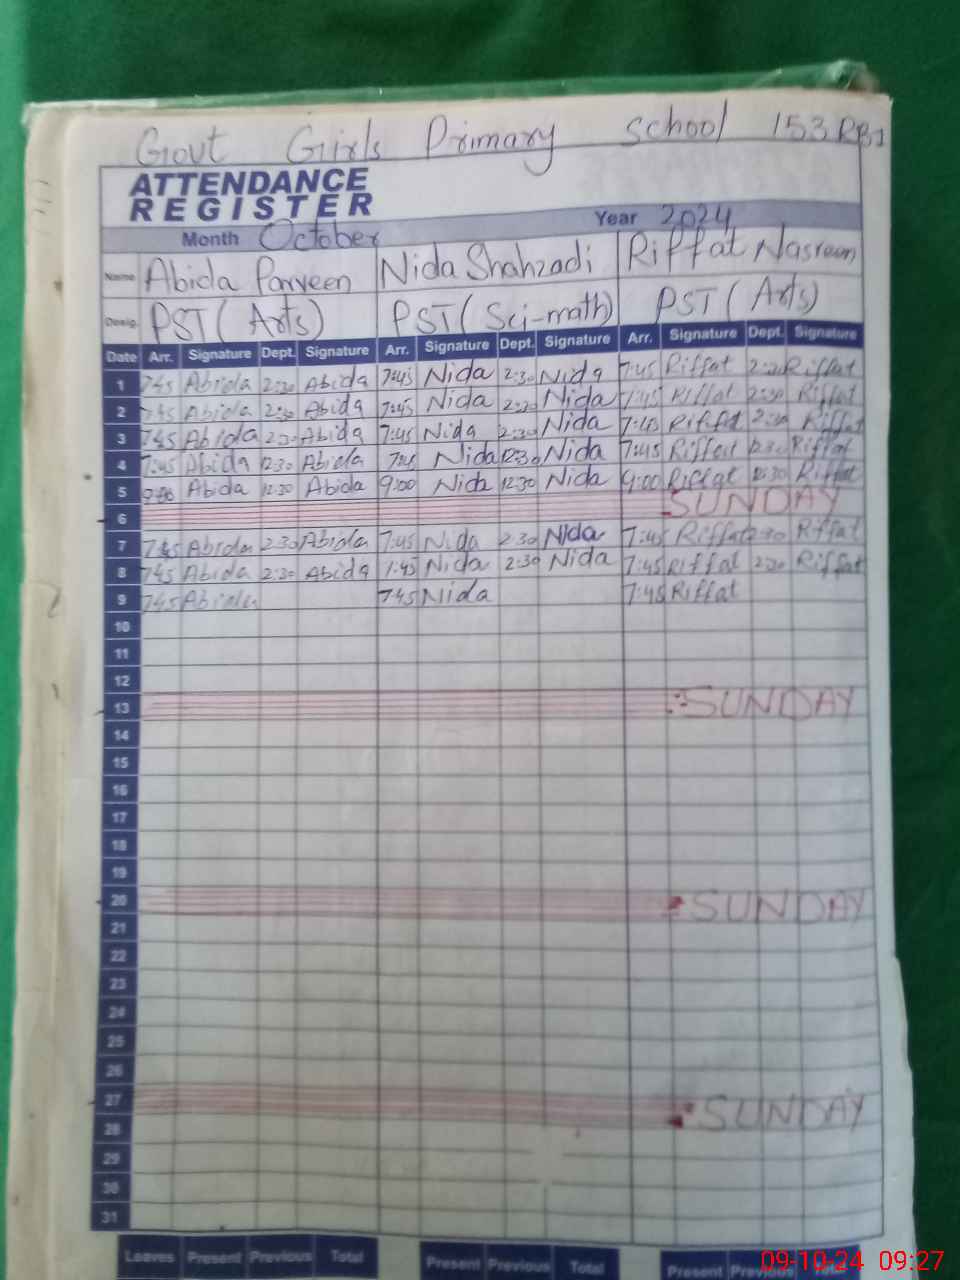 Govt Girls Primary School 153 RB1
ATTENDANCE
REGISTER
Month October Year 2024
Name Abida Parveen Nida Shahzadi Riffat Nasreen
Desig. PST (Arts) PST (Sci-math) PST (Arts)
Date Arr. Signature Dept. Signature Arr. Signature Dept. Signature Arr. Signature Dept. Signature
1 7:45 Abida 2:30 Abida 7:45 Nida 2:30 Nida 7:45 Riffat 2:30 Riffat
2 7:45 Abida 2:30 Abida 7:45 Nida 2:30 Nida 7:45 Riffat 2:30 Riffat
3 7:45 Abida 2:30 Abida 7:45 Nida 2:30 Nida 7:45 Riffat 2:30 Riffat
4 7:45 Abida 12:30 Abida Nida 12:30 Nida 7:45 Riffat 12:30 Riffat
5 9:00 Abida 12:30 Abida 9:00 Nida 12:30 Nida 9:00 Riffat 12:30 Riffat
6 SUNDAY
7 7:45 Abida 2:30 Abida 7:45 Nida 2:30 Nida 7:45 Riffat 2:30 Riffat
8 7:45 Abida 2:30 Abida 7:45 Nida 2:30 Nida 7:45 Riffat 2:30 Riffat
9 7:45 Abida 7:45 Nida 7:45 Riffat
10
11
12
13 SUNDAY
14
15
16
17
18
19
20 SUNDAY
21
22
23
24
25
26
27 SUNDAY
28
29
30
31
Leaves Present Previous Total Present Previous Total Present Previous Total
09-10-24 09:27